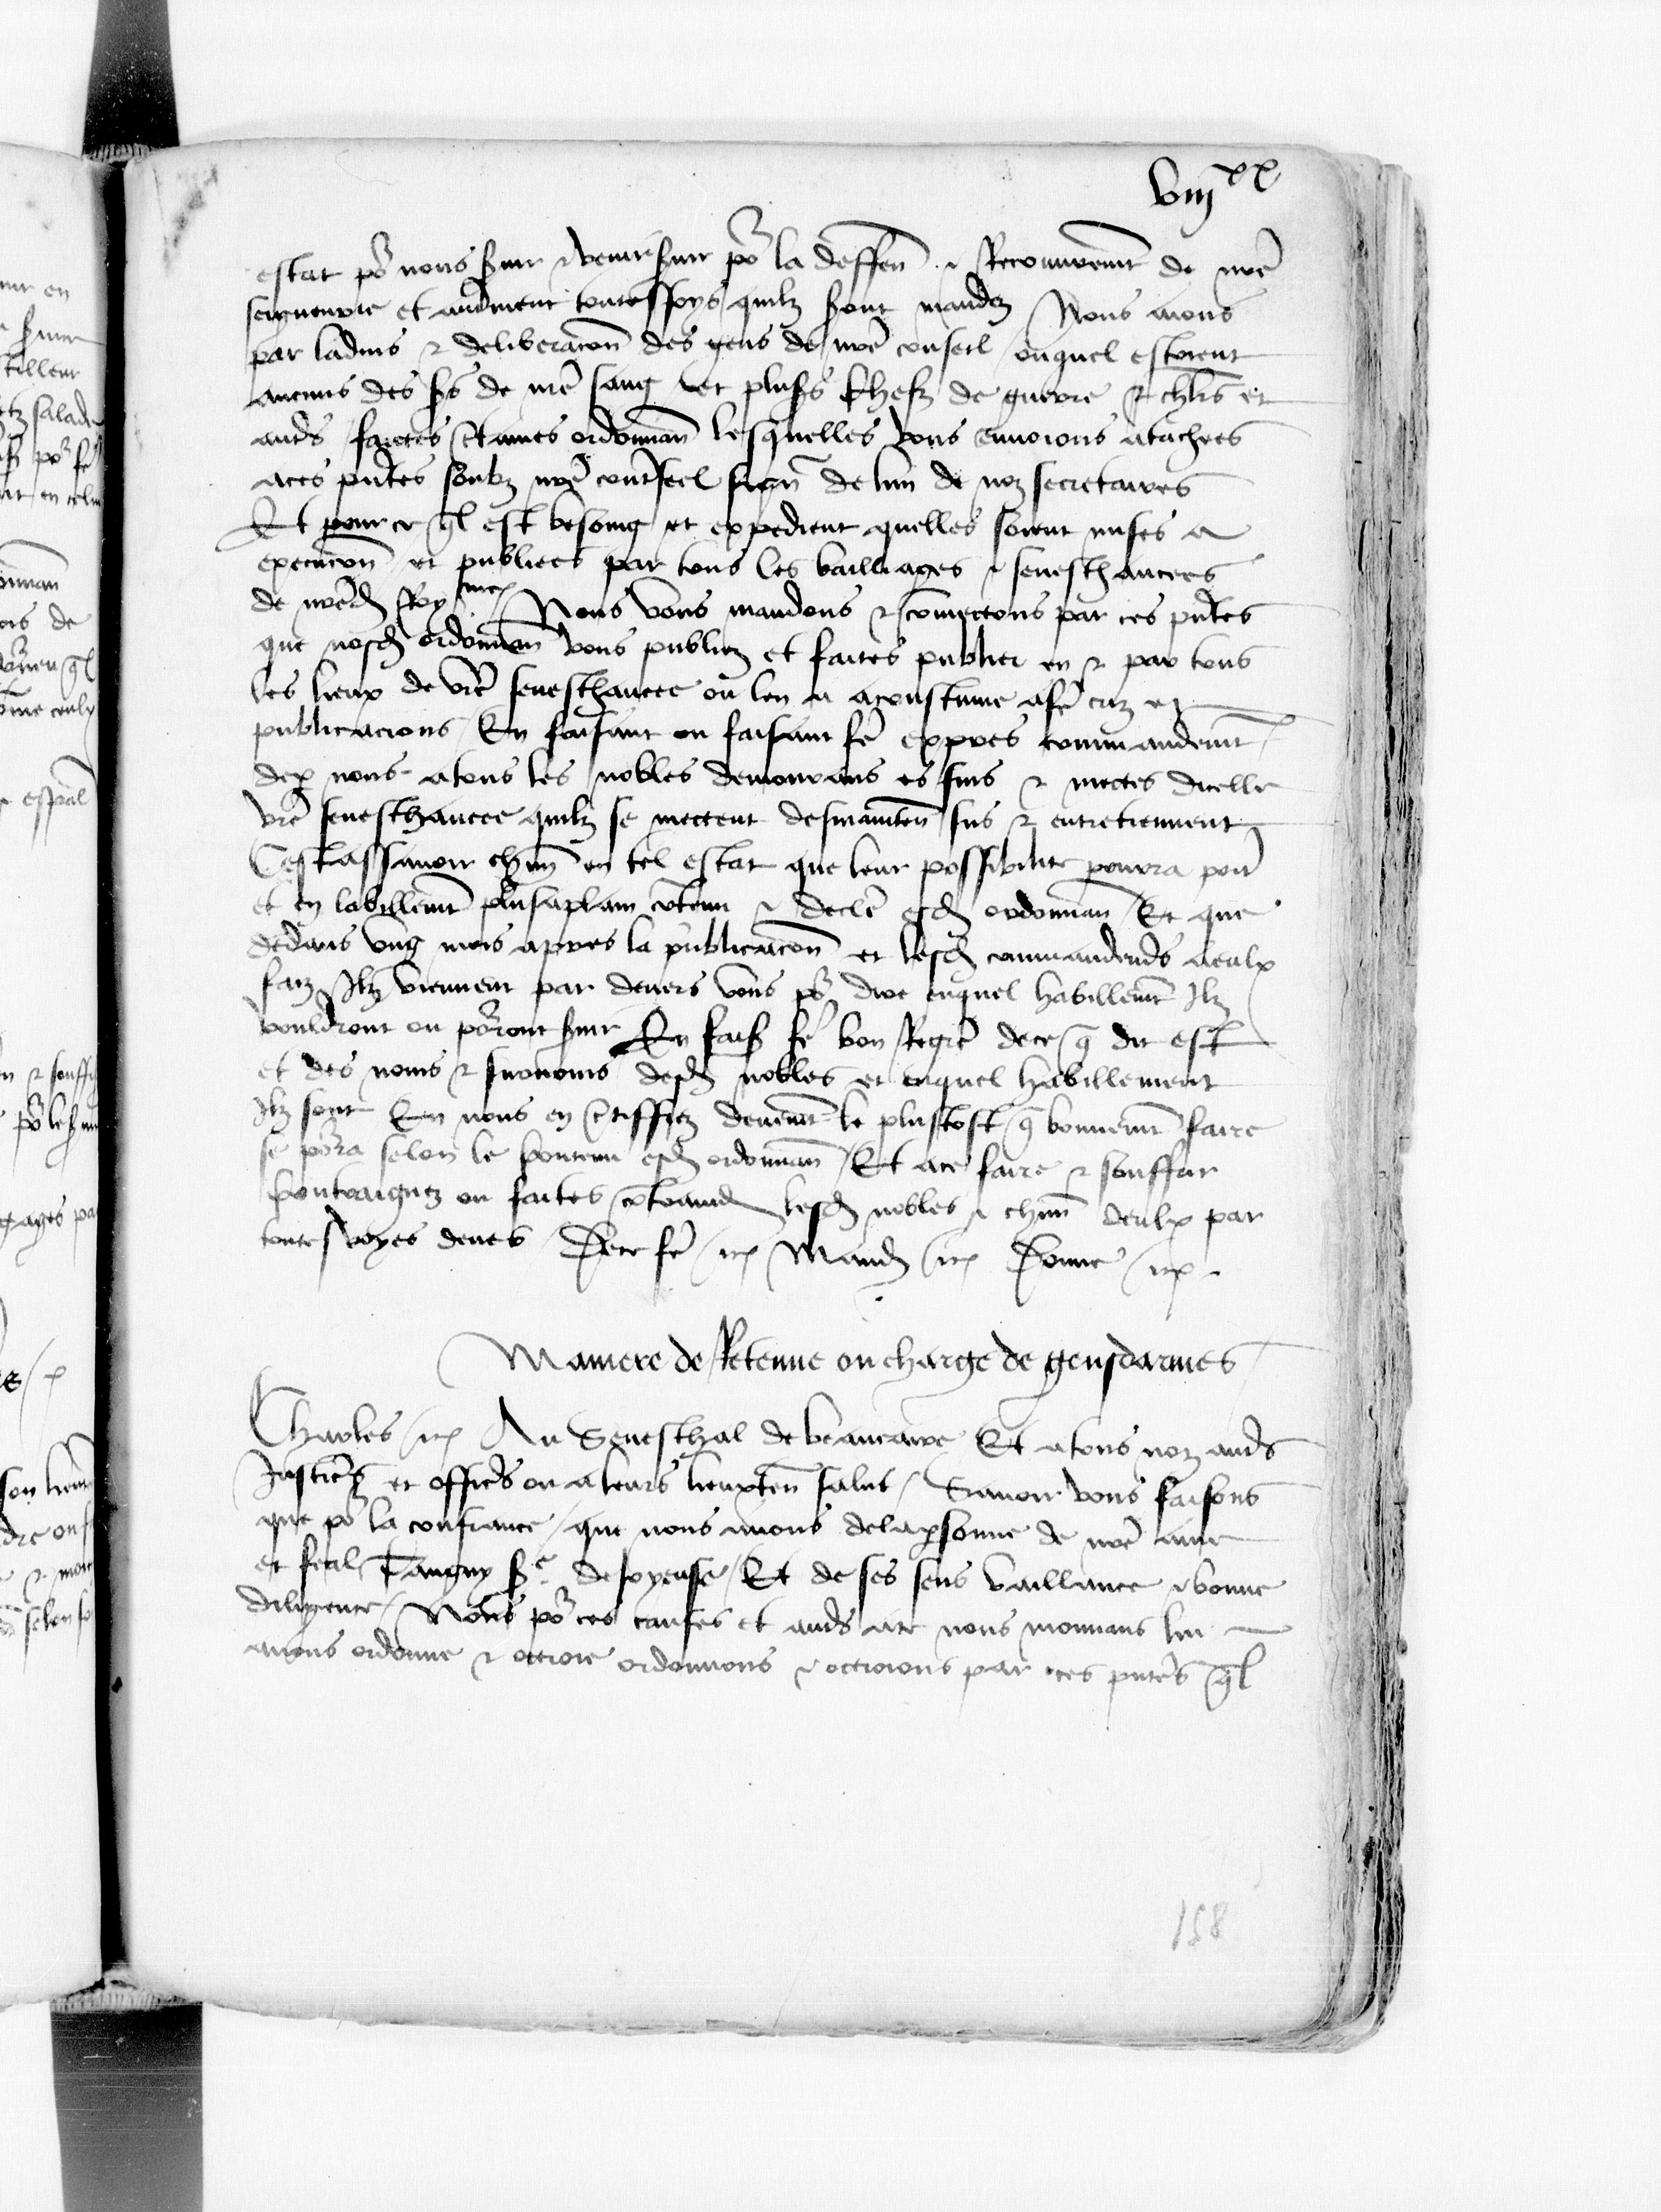 viij xx
estat po' nous s'uir & venir s'uir po' la deffen & Recouurem't de n're
seigneurie et aud'ment toutessfoys quilz sont mandez Nous auons
par laduis & deliberacion des gens de n're conseil ouquel estoient
aucuns des s'rs de n're sang et plus's chefz de guerre & ch'l'rs et
aut's faictes c'taines ordonnan' lesquelles vous enuoions atachees
a ces p'ntes soubz n're contr'seel sign' de lun de noz secretaires
Et pour ce q'l est besoing et expedient quelles soient mises a
execucion et publiees par tous les bailliages & seneschaucees
de n're d' Roy'me Nous vous mandons & commectons par ces p'ntes
que nosd' ordonnan' vous publiez et faites publier en & par tous
les lieux de v're seneschaucee ou len a acoustume a fe' criz et
publicacions En faisant ou faisant fe' expres commandem't
de p' nous a tous les nobles demourans es fins & mectes dicelle
v're seneschaucee quilz se mectent desmainten' sus & entretiennent
Cest assauoir ch'un en tel estat que leur possibilite pourra port'
et en labillem't plus aplain c'tenu & decl're esd' ordonnan' Et que
dedans vng mois apres la publicacion et lesd' commandem's a eulx
faiz Ilz viennent par deuers vous po' dire enquel habillem't Ilz
vouldront ou po'ront s'uir En fais' fe' bon Reg're de ce q' dit est
et des noms & surnoms desd' nobles et enquel habillement
Ilz sont En nous en c'tiffiez deuem't le plustost q' bonnem't faire
se po'ra selon le contenu esd' ordonnan' Et a ce faire & souffrir
contraignez ou faites c'traind' lesd' nobles & ch'un deulx par
toutes voyes deues De ce fe' etc Mand' etc Donne etc
Maniere de Retenue ou charge de gensdarmes
Charles etc Au Seneschal de beaucaire Et a tous noz aut's
Justic's et offic's ou a leurs lieuxten' salut Sauoir vous faisons
que po' la confiance que nous auons de la p'sonne de n're ame
et feal Tanguy s'r de Joyeuse Et de ses sens vaillance & bonne
diligence Nous po' ces causes et aut's a ce nous mouuans lui
auons ordonne & octroie ordonnons & octroions par ces p'ntes q'l
158